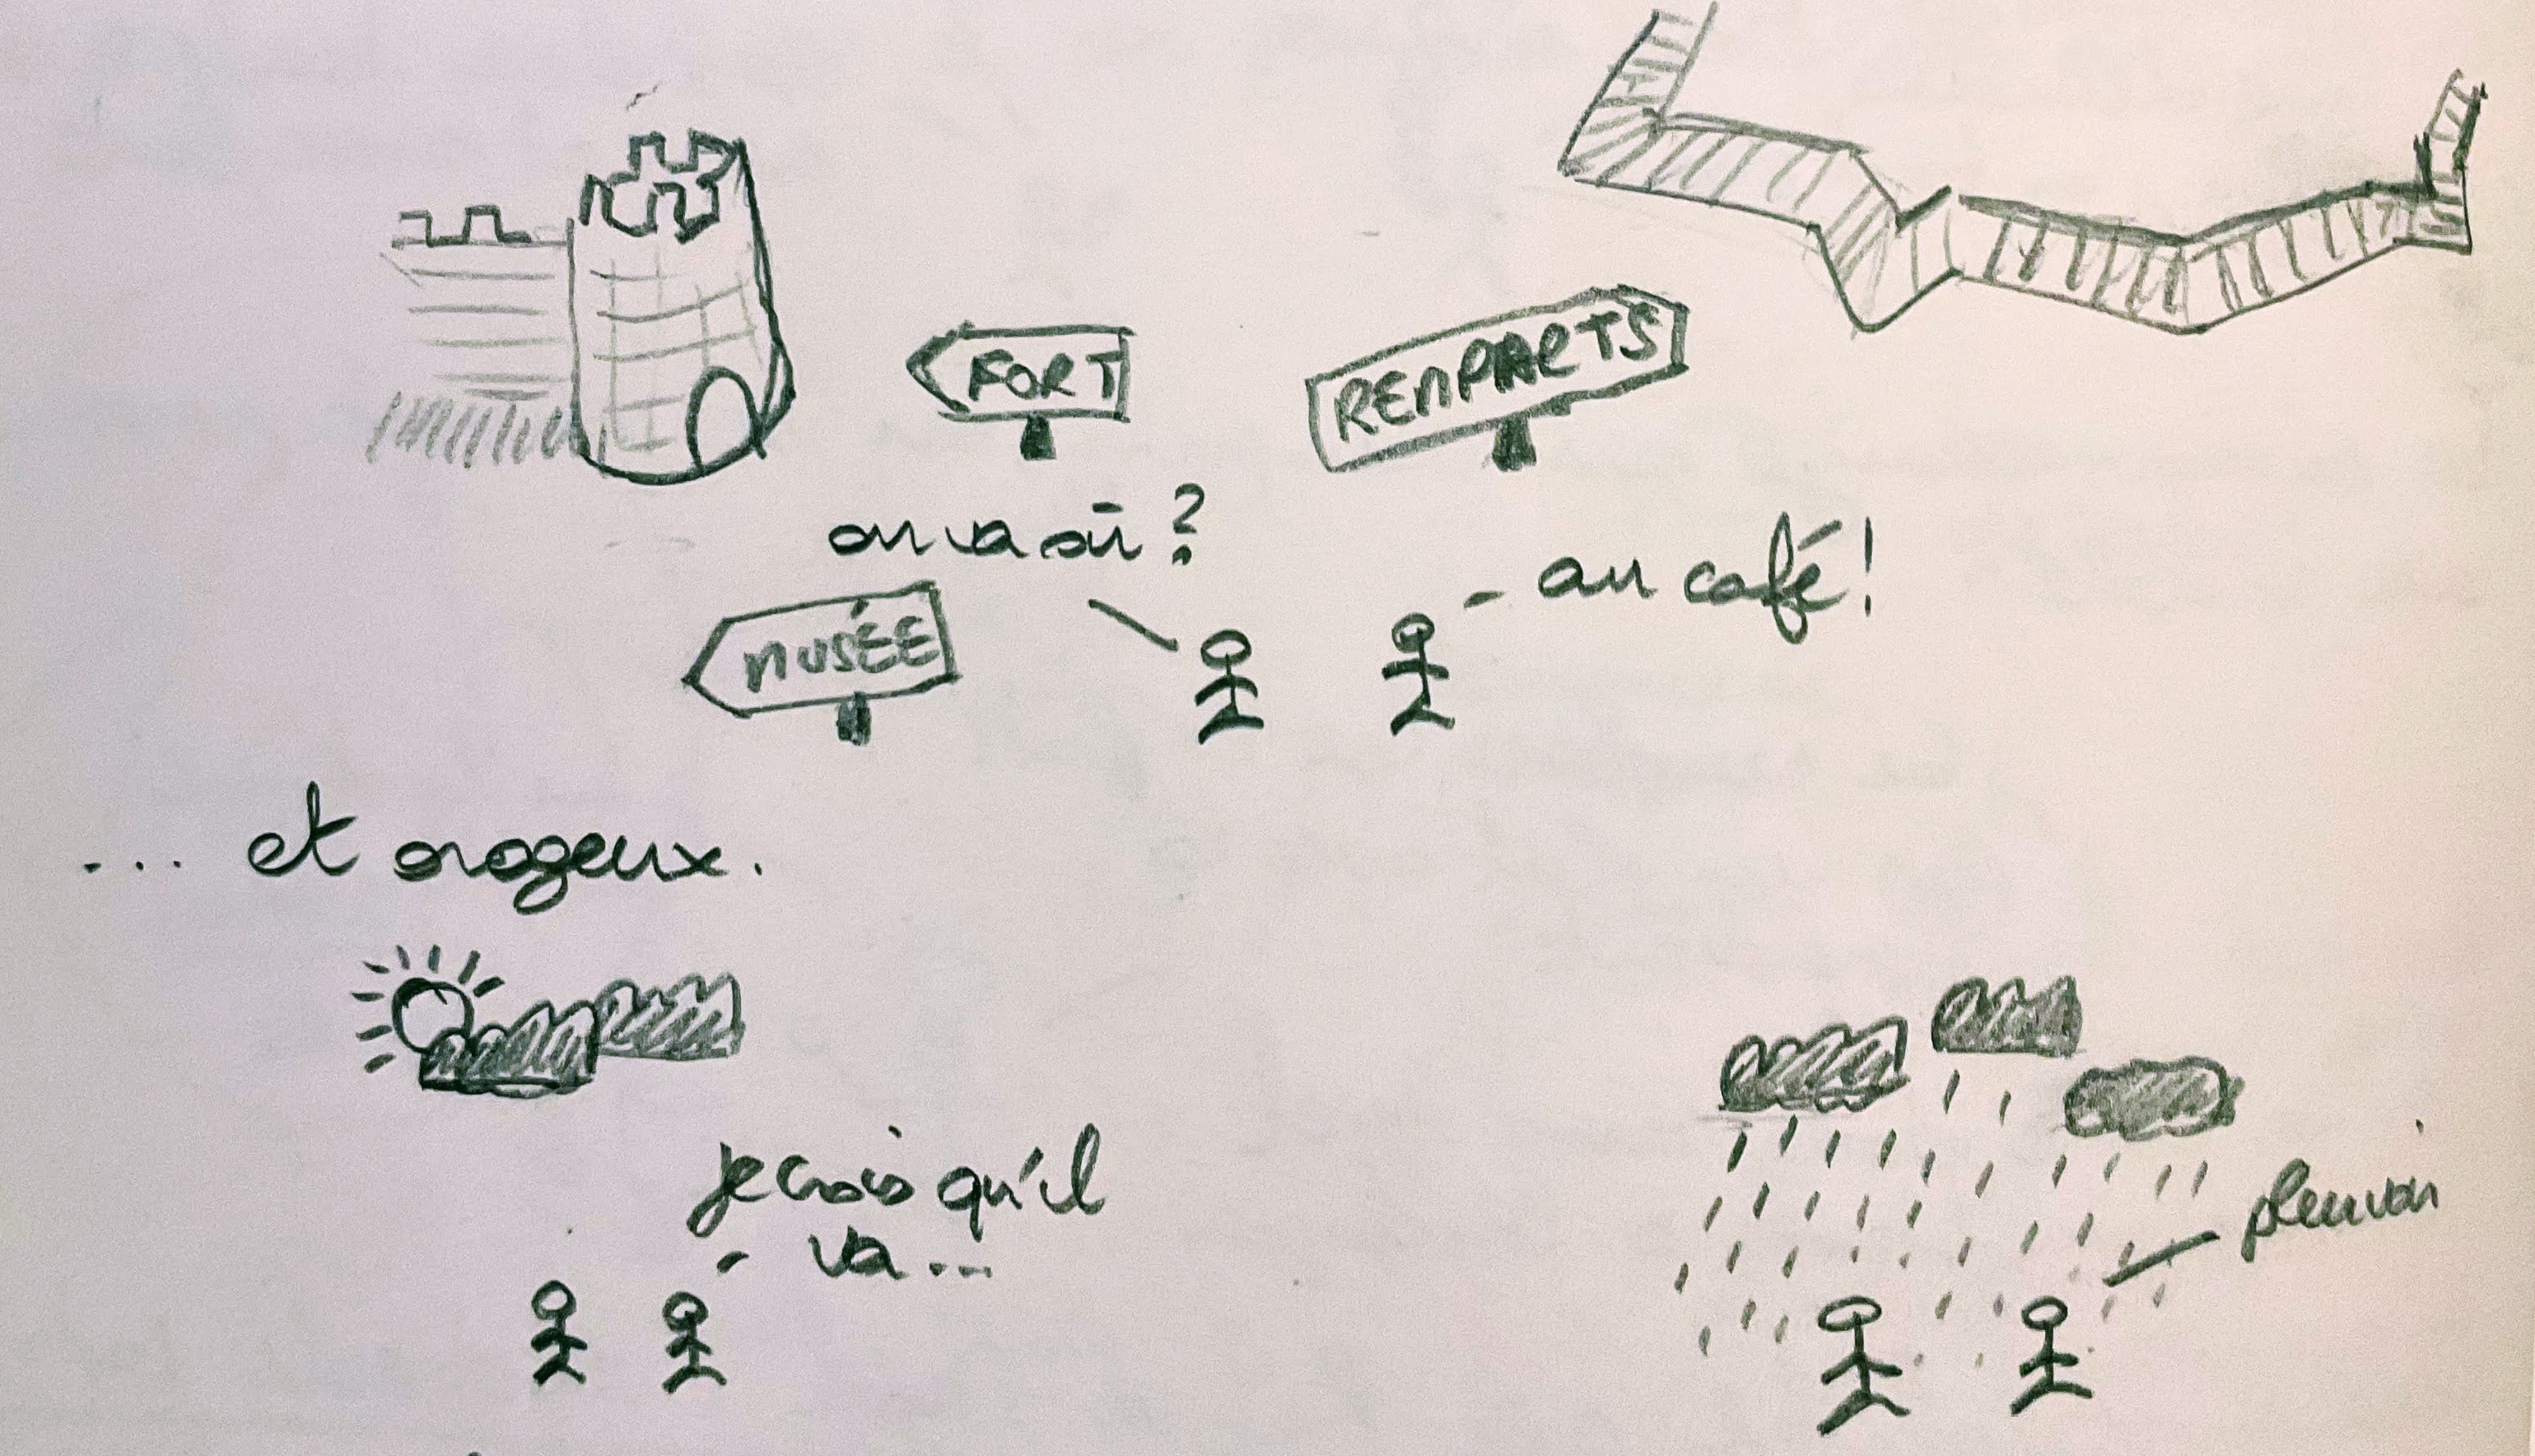 FORT
REMPARTS
on va où ?
- au café !
MUSÉE
... et orageux.
je crois qu'il
va...
pleuvoir